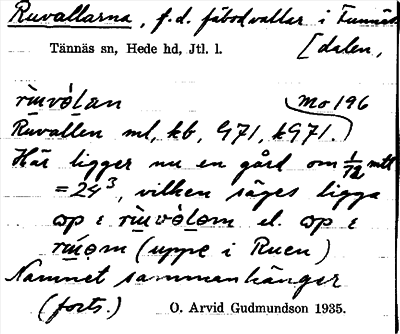 Ruvallarna, f.d. fäbodvallar i Funnäs
[dalen,
Tännäs sn, Hede hd, Jtl. l.
Mo 196
Ruvallen ml, kb, G71, kG71.
Här ligger nu en gård om 1/12 mtl
= 24³, vilken säges ligga
el.
(uppe i Ruen)
Namnet sammanhänger
(forts.) O. Arvid Gudmundson 1935.